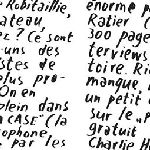 Robitaille,
ateau,
? Ce sont
-uns des
istes de
plus pro-
On en
plein dans
CASE" (la
ophone,
par les
énorme p
Ratier (
300 page
terviews
toire. Ri
manque,
un petit
sur le
gratuit
Charlie H